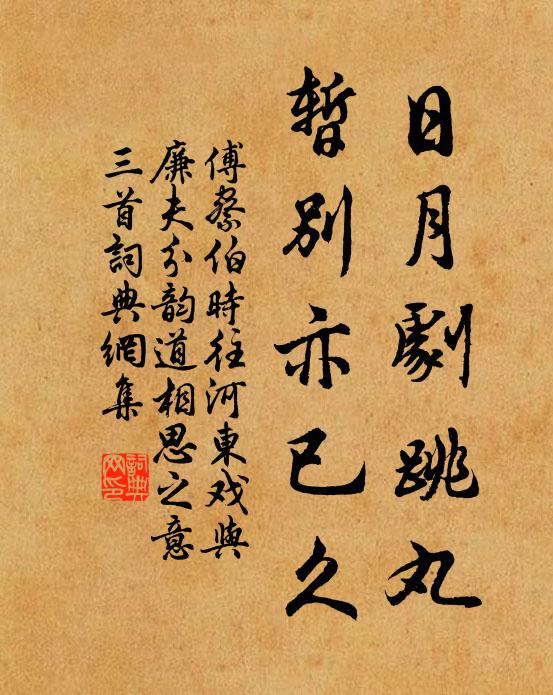 日月劇跳丸
暫別亦已久
傅察伯時往河東戏與
廉夫分韵道相思之意
三首詞典網集
詞典网印